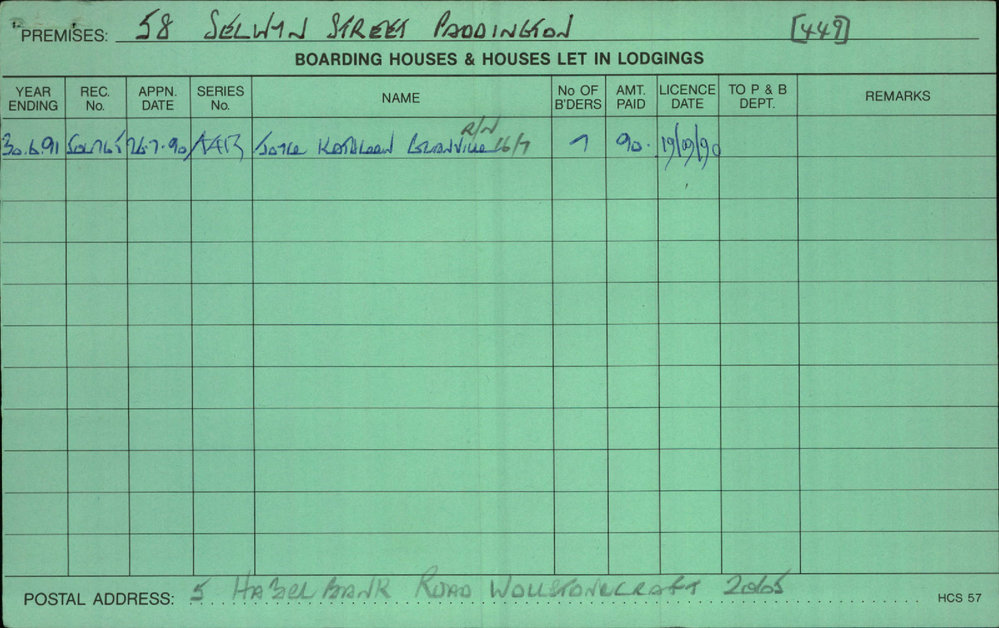 PREMISES: 58 SELWYN STREET PADDINGTON [449]
BOARDING HOUSES & HOUSES LET IN LODGINGS
YEAR ENDING REC. No. APPN. DATE SERIES No. NAME No OF B'DERS AMT. PAID LICENCE DATE TO P & B DEPT. REMARKS
R/N
30.6.91 26.7.90 JOYCE KATHLEEN GRANVILLE 26/7 7 90. 19/09/90
POSTAL ADDRESS: 5 HAZELBANK ROAD WOLLSTONECRAFT 2065
HCS 57